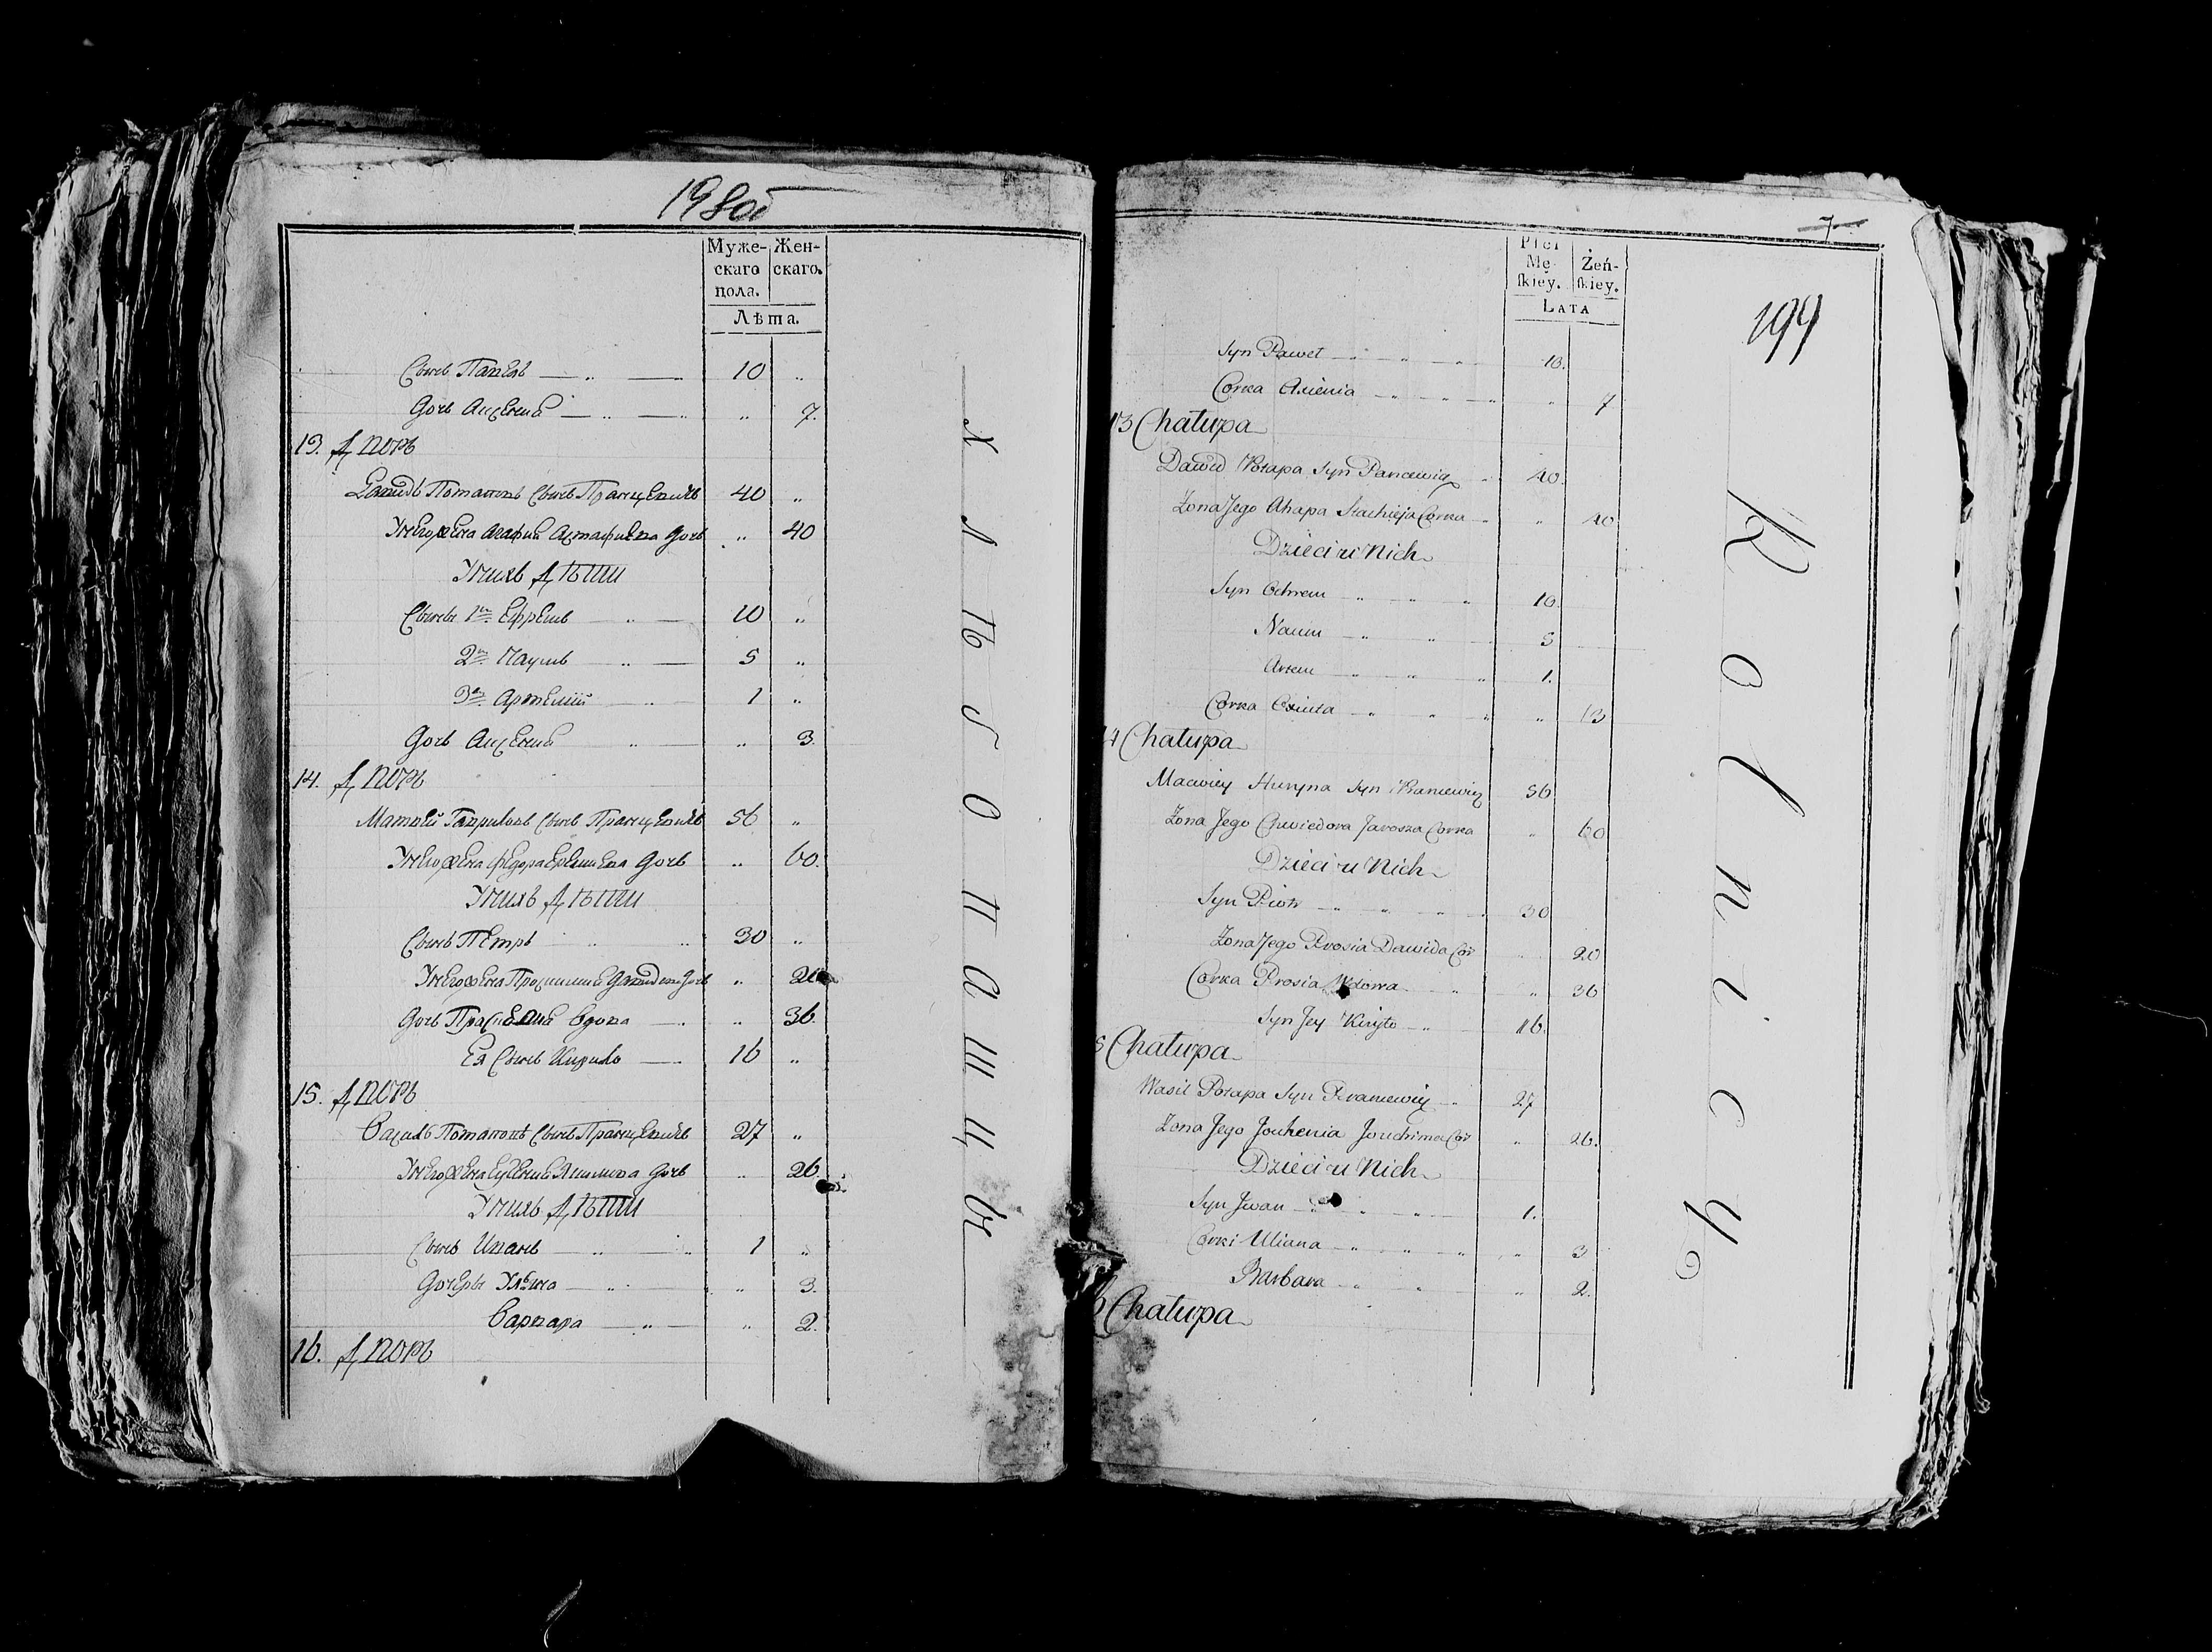 198об
Муже- Жен-
скаго скаго.
пола.
Лѣта.
Сынъ Павелъ 10 „
Дочь Аксения „ 7.
13. Дворъ
Давидъ Потаповъ Сынъ Пранцкевичь 40 „
У него жена Агафия Астафиева дочь „ 40
У нихъ Дѣти
Сыновья 1й Ефремъ 10 „
2й Наумъ 5 „
3й Артемий 1 „
Дочь Аксения „ 3.
14. Дворъ
Матвей Гавриловъ Сынъ 56 „
У него жена Федора Еремиева дочь „ 60.
У нихъ Дѣти
Сынъ Петръ 30 „
У него жена Давидова дочь „ 20
Дочь вдова „ 36.
Ея Сынъ Кирило 16 „
15. Дворъ
Василь Потаповъ Сынъ 27 „
У него жена Евгения дочь „ 26.
У нихъ Дѣти
Сынъ Иванъ 1 „
Дочери Ульяна „ 3.
Варвара „ 2.
16. Дворъ
ХЛѢБОПАШЦЫ
7
199
Płci
Mę- Żeń-
ſkiey. ſkiey.
LATA
Syn Paweł 10.
Corka Axienia „ 7
13 Chałupa
Dawid Potapa Syn 40
Zona Jego Ahapa Corka „ 40
Dzieci u Nich
Syn Ochrem 10.
Naum 5
Artem 1.
Corka „ 13
14 Chałupa
Maciwiey Huryna Syn 56
Zona Jego Chwiedora Jarosza Corka „ 60
Dzieci u Nich
Syn Piotr 30
Zona Jego Prosia Dawida Cor 20
Corka Prosia Wdowa „ 36
Syn Jey Kiryło 16.
5 Chałupa
Wasil Potapa Syn Praniewicz 27
Zona Jego Jouhenia Jouchima Cor „ 26.
Dzieci u Nich
Syn Jwan 1.
Corki Uliana „ 3
Barbara „ 2.
6 Chałupa
Rolnicy